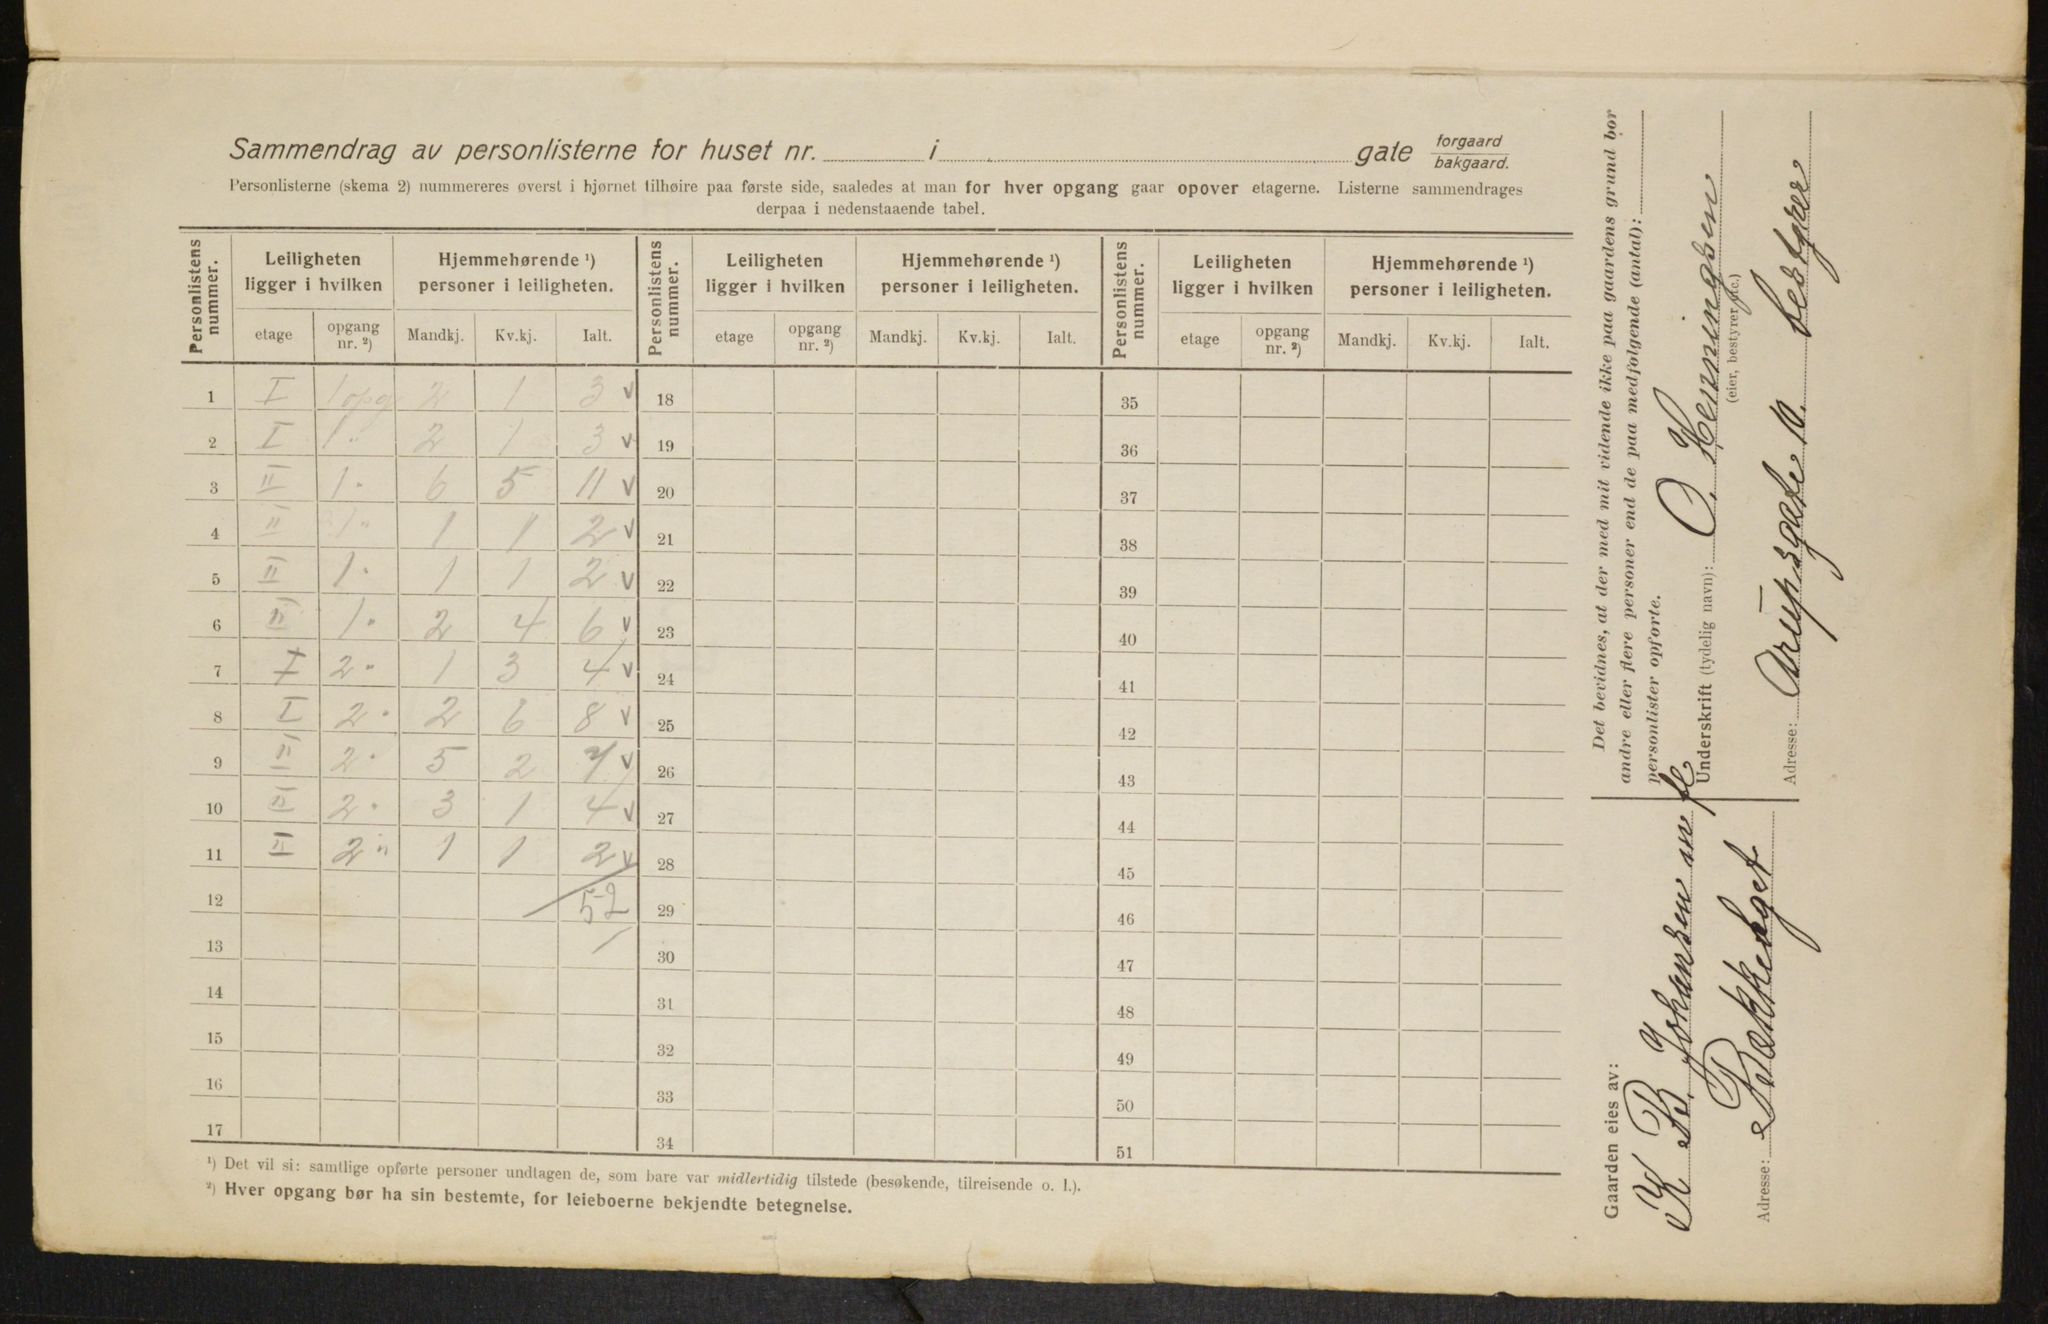 Sammendrag av personlisterne for huset nr. i gate forgaard bakgaard.
Personlisterne (skema 2) nummereres øverst i hjørnet tilhøire paa første side, saaledes at man for hver opgang gaar opover etagerne. Listerne sammendrages
derpaa i nedenstaaende tabel.
Personlistens nummer. Leiligheten ligger i hvilken Hjemmehørende ¹) personer i leiligheten. Personlistens nummer. Leiligheten ligger i hvilken Hjemmehørende ¹) personer i leiligheten. Personlistens nummer. Leiligheten ligger i hvilken Hjemmehørende ¹) personer i leiligheten.
etage opgang nr. ²) Mandkj. Kv.kj. Ialt. etage opgang nr. ²) Mandkj. Kv.kj. Ialt. etage opgang nr. ²) Mandkj. Kv.kj. Ialt.
1 I 1 opg 2 1 3 v 18 35
2 I 1 " 2 1 3 v 19 36
3 II 1 " 6 5 11 v 20 37
4 II 1 " 1 1 2 v 21 38
5 II 1 " 1 1 2 v 22 39
6 II 1 " 2 4 6 v 23 40
7 I 2 " 1 3 4 v 24 41
8 I 2 " 2 6 8 v 25 42
9 II 2 " 5 2 7 v 26 43
10 II 2 " 3 1 4 v 27 44
11 II 2 " 1 1 2 v 28 45
12 52 29 46
13 30 47
14 31 48
15 32 49
16 33 50
17 34 51
¹) Det vil si: samtlige opførte personer undtagen de, som bare var midlertidig tilstede (besøkende, tilreisende o. l.).
²) Hver opgang bør ha sin bestemte, for leieboerne bekjendte betegnelse.
Gaarden eies av:
K B. Johansen m fl
Adresse: Bakkehgat
Det bevidnes, at der med mit vidende ikke paa gaardens grund bor
andre eller flere personer end de paa medfølgende (antal):
personlister opførte.
Underskrift (tydelig navn): O. Henningsen
(eier, bestyrer etc.)
Adresse: Arupsgate 10. bestyrer